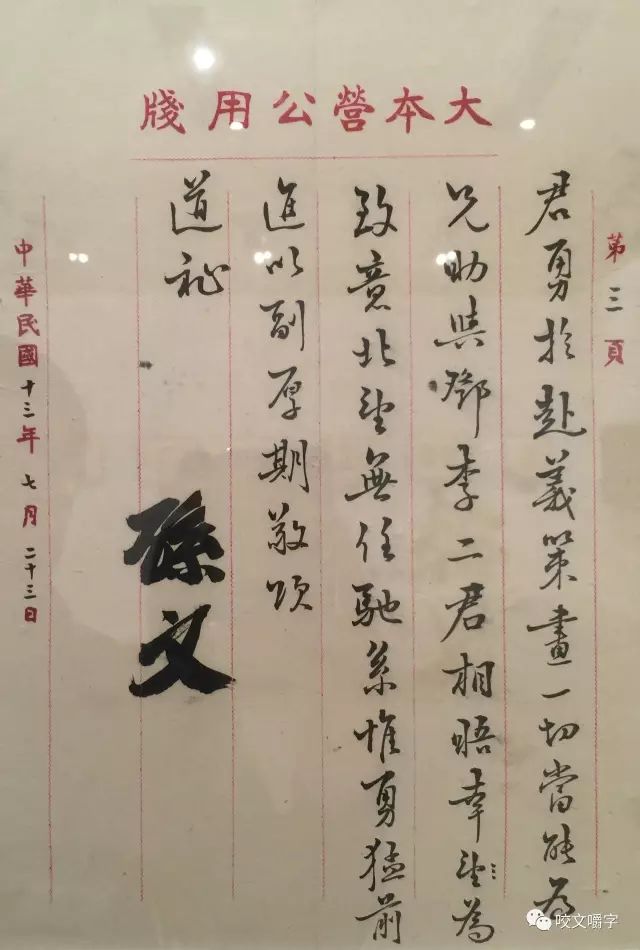 大本營公用牋
第三頁
君勇於赴義策畫一切當能為
兄助與鄧李二君相晤幸望為
致意北望無任馳系惟勇猛前
進以副厚期敬頌
道祉
孫文
中華民國十三年七月二十三日
咬文嚼字